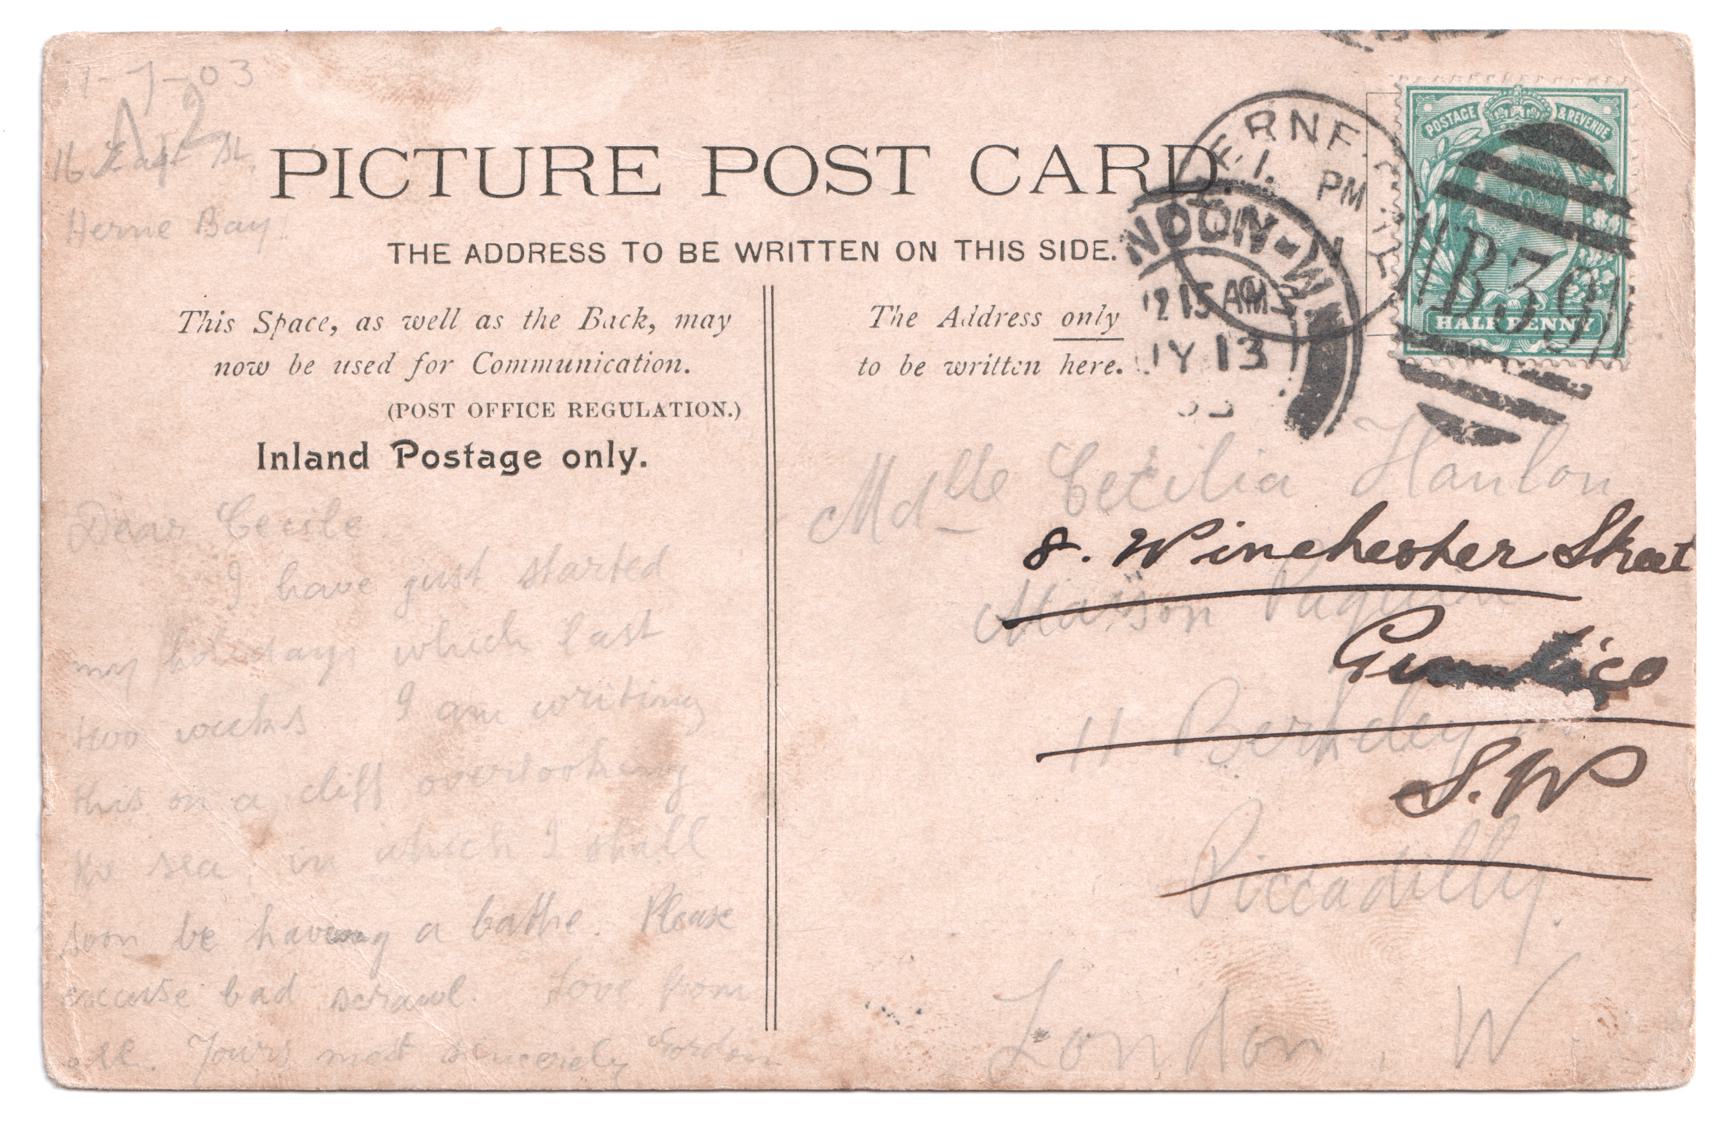 -7-03
A2
16 East St.
Herne Bay.
PICTURE POST CARD
THE ADDRESS TO BE WRITTEN ON THIS SIDE.
This Space, as well as the Back, may
now be used for Communication.
(POST OFFICE REGULATION.)
Inland Postage only.
Dear Cecile
I have just started
my holidays which last
two weeks I am writing
this on a cliff overlooking
the sea, in which I shall
soon be having a bathe. Please
excuse bad scrawl. Love from
all. Yours most sincerely Gordon
The Address only
to be written here.
ERNE
1. PM
NDON-W
12 15 AM
JY 13
POSTAGE & REVENUE
B39
HALF PENNY
Mdlle Cecilia Hanlon
8. Winchester Street
Maison Paquin
S.W
11 Berkeley
Piccadilly.
London, W